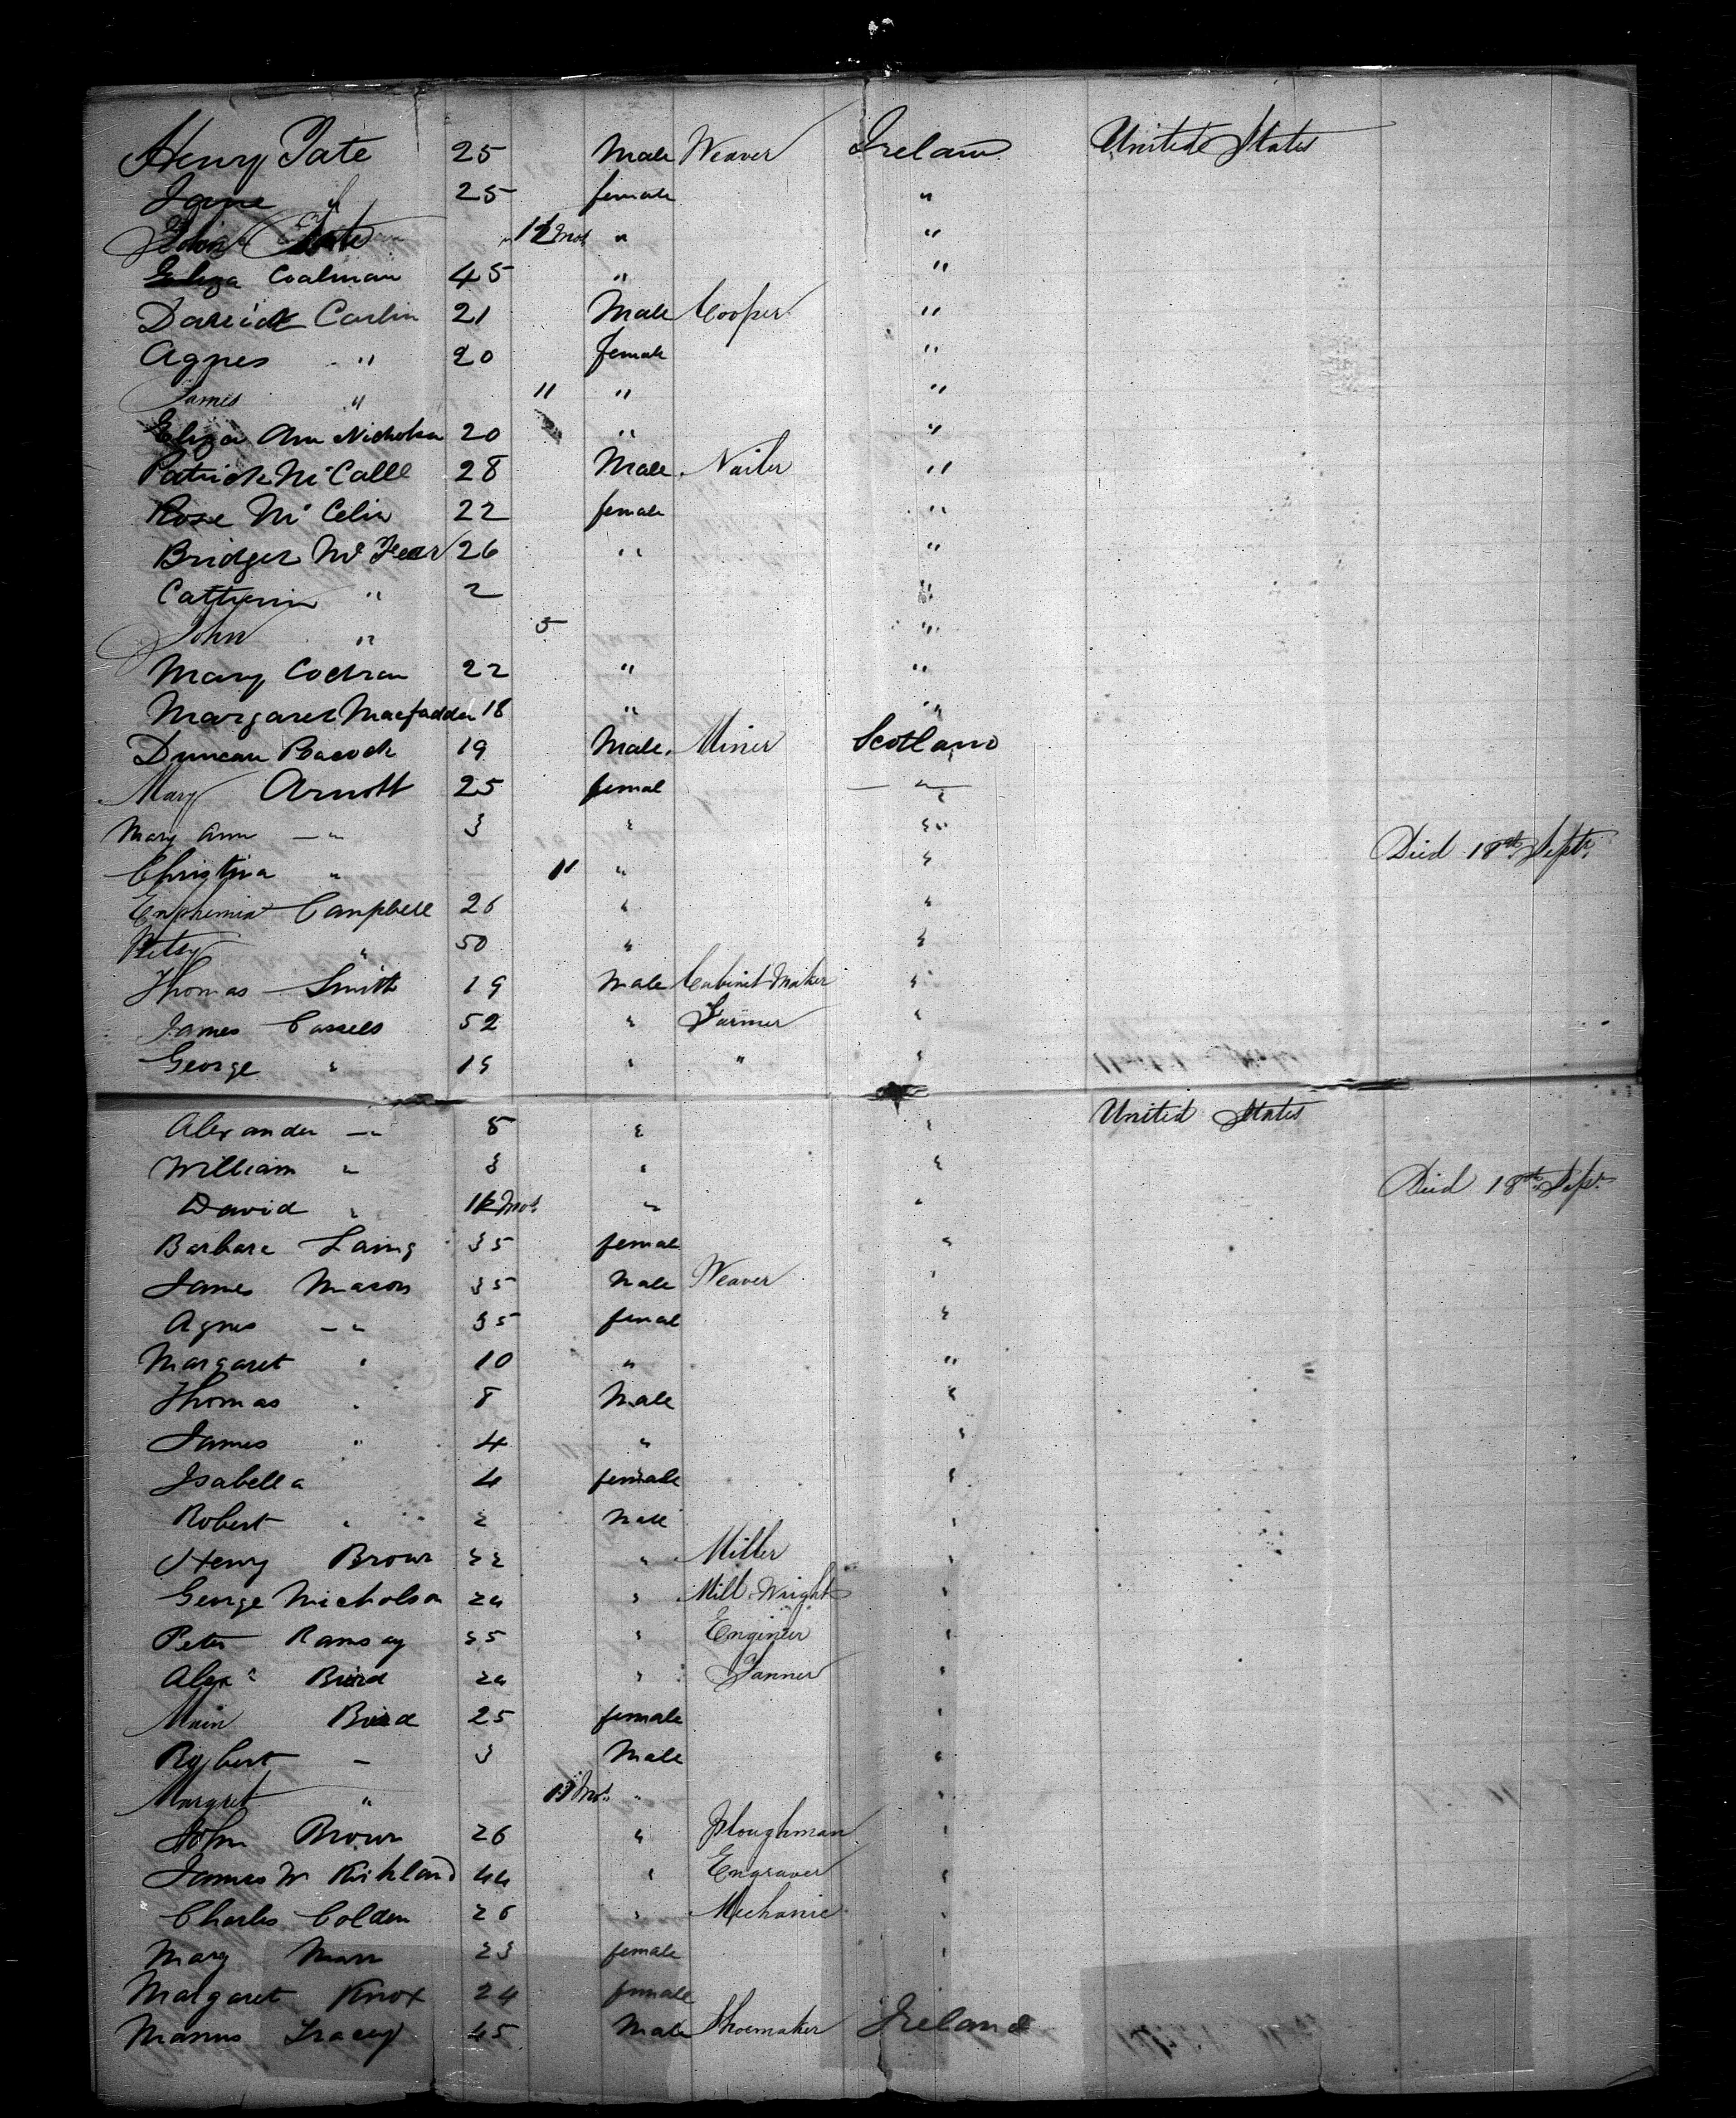 Henry Tate 25 Male Weaver Ireland United States
Jane " 25 female "
John Tate 12 Mos " "
Eliza Coalman 45 " "
Carlin 21 Male Cooper "
Agnes " 20 female "
James " 11 " "
Eliza Ann Nicholson 20 " "
Patrick McCall 28 Male Nailer "
Rose Mc 22 female "
Bridget Mc 26 " "
Catherin " 2 "
John " 5 "
Mary Cochran 22 " "
Margaret Macfadden 18 " "
Duncan Peacock 19 Male Miner Scotland
Mary Arnott 25 femal — " —
Mary Ann — " 3 " "
Christina " 11 " " Died 18th Sept.
Euphemia Campbell 26 " "
Betsy " 50 " "
Thomas Smith 19 Male Cabinet Maker "
James Cassels 52 " Farmer "
George " 19 " " "
Alexander — " 8 " " United States
William " 3 " "
David " 12 Mos " " Died 18th Sept.
Barbara Laing 35 femal "
James Mason 35 Male Weaver "
Agnes — " 35 femal "
Margaret " 10 " "
Thomas " 8 Male "
James " 4 " "
Isabella 4 female "
Robert " 2 Male "
Henry Brown 22 " Miller "
George Nicholson 24 " Mill Wright "
Peter Ramsay 35 " Engineer "
Alexr Baird 24 " Tanner "
Baird 25 female "
Robert — 3 Male "
Margret " 11 Mos " "
John Brown 26 " Ploughman "
James W Kirkland 44 " Engraver "
Charles Colden 26 " Mechanic "
Mary 23 female "
Margaret Knox 24 female
Manus Tracey 45 Male Shoemaker Ireland